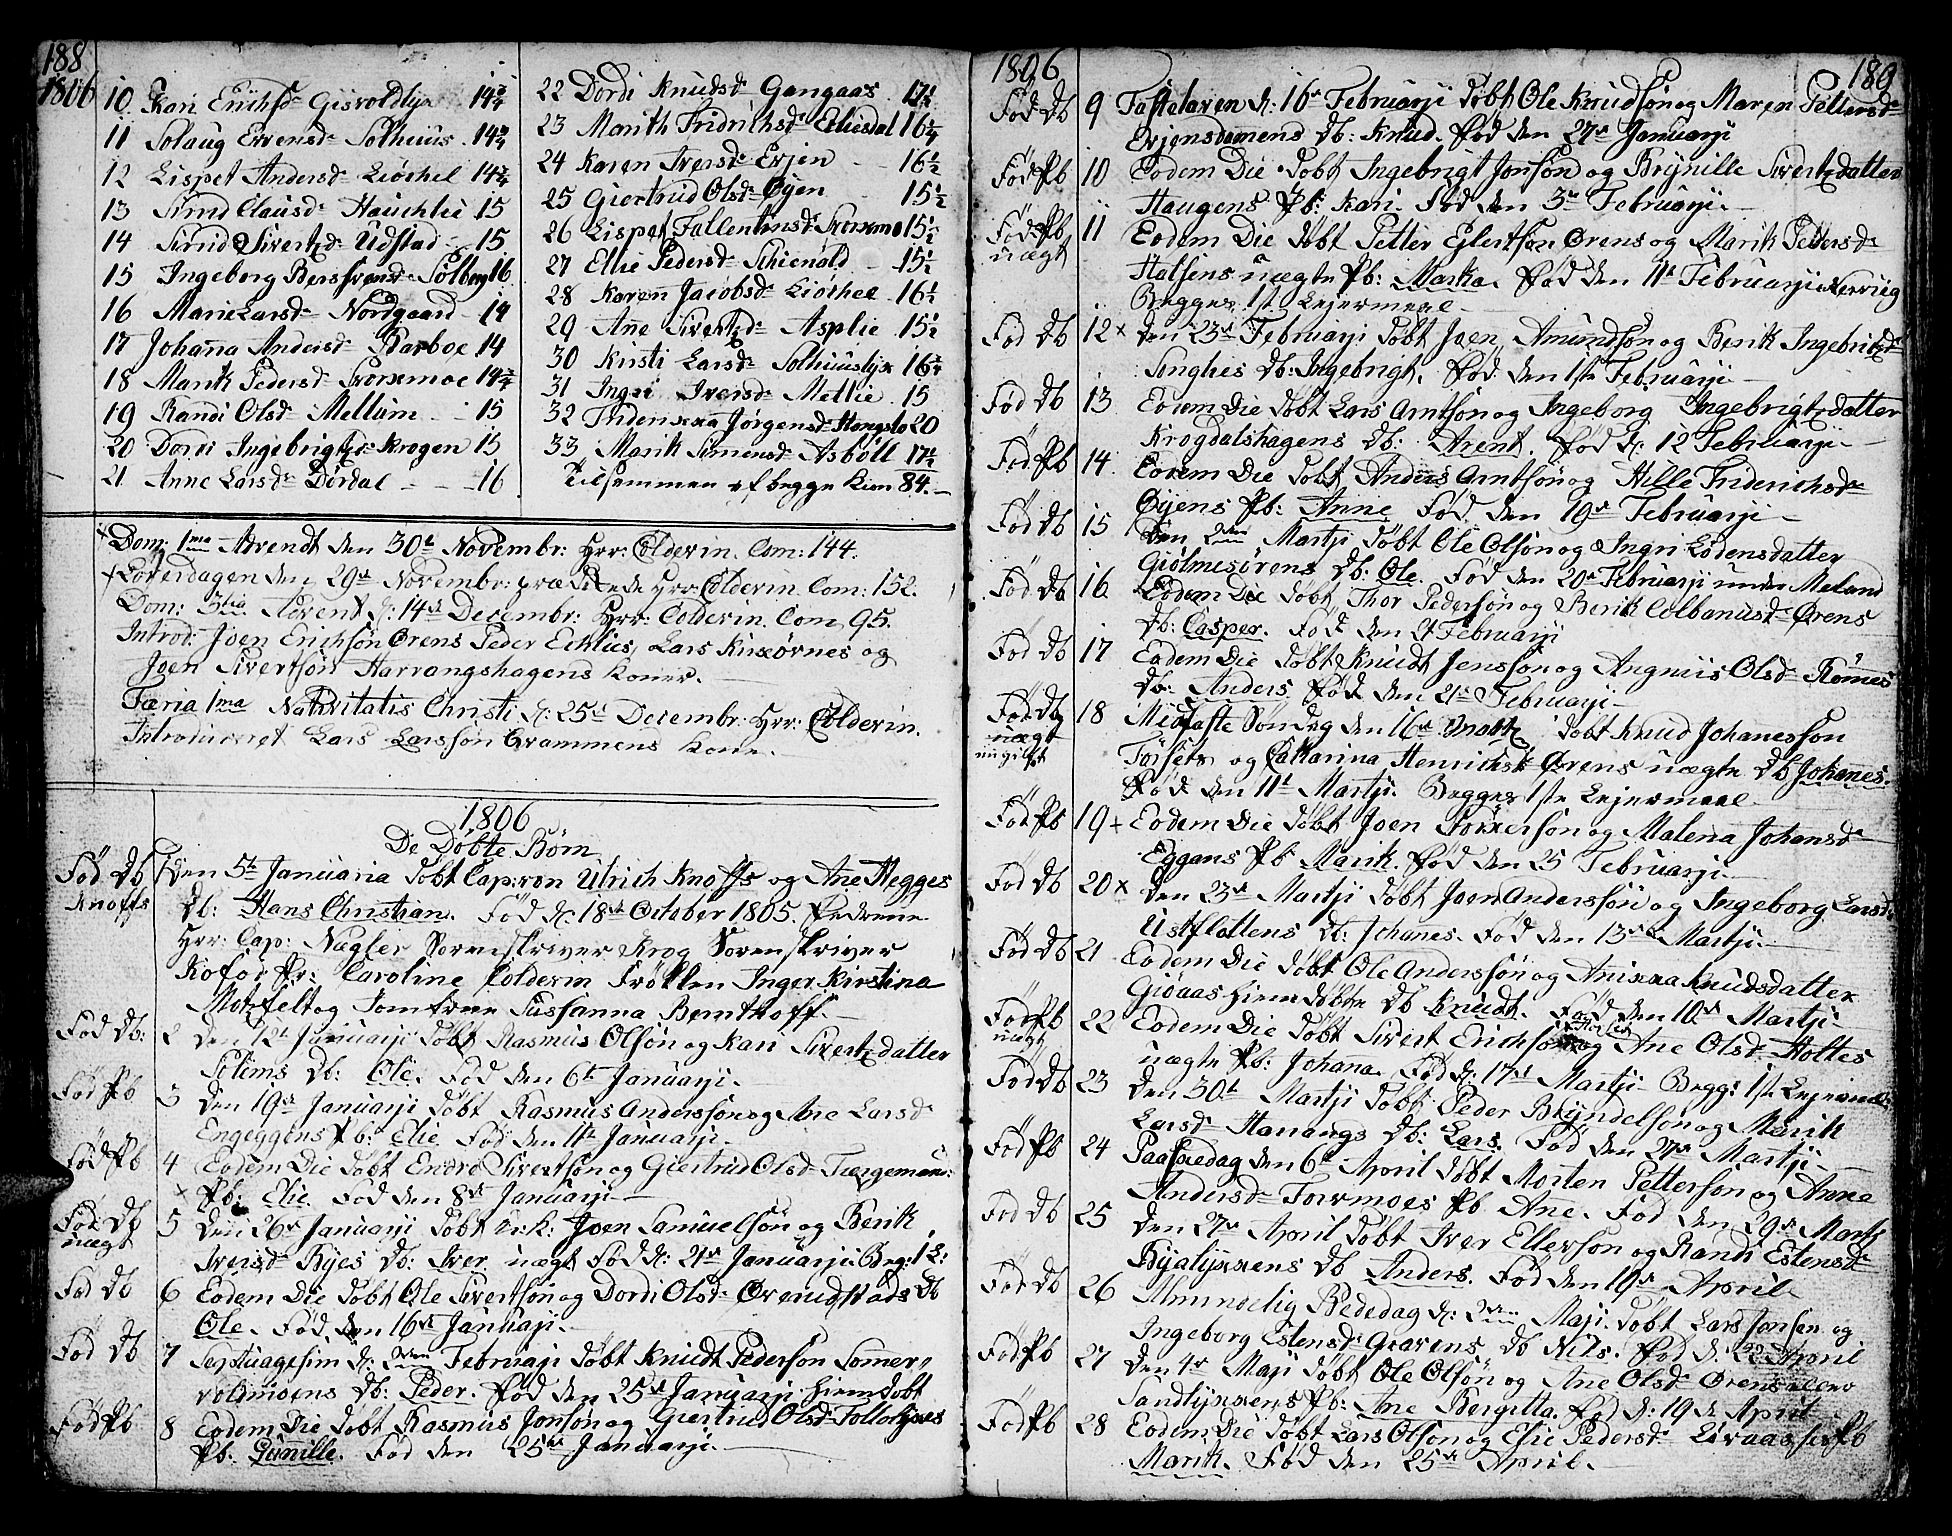 188
1806
10 Kari Erichsd: Gisvoldlya 14 3/4
11 Solaug Evensd: Solhuus 14 3/4
12 Lispet Andersd: Liøchel 14 3/4
13 Sirud Clausd: Hauchlie 15
14 Sirud Sivertzd: Udstad 15
15 Ingeborg Berssvend: Solberg 16
16 Marie Larsd: Nordgaard 19
17 Johanna Andersd: Barboe 14
18 Marit Pedersd: Storemoe 14 3/4
19 Randi Olsd: Mellum 15
20 Dordi Ingebrigtzd: Krogen 15
21 Anne Larsd: Dørdal 16
22 Dordi Knudsd: Gangaas 17 1/2
23 Marith Fridrichsd: Echisdal 16 1/4
24 Karen Iversd: Erjen 16 1/2
25 Giertrud Olsd: Øyen 15 1/2
26 Lispet Fallentinsd: 15 1/2
27 Ellie Pedersd: Schienald 15 1/2
28 Karen Jacobsd: Liøchel 16 1/2
29 Ane Sivertzd: Asplie 15 1/2
30 Kirsti Larsd: Solhuuslya 16 1/4
31 Ingri Iversd: Mellie 15
32 Jørgensd: 20
33 Marit Simensd: Asbøll 17 1/2
Tilsammen af begge Kiøn 84.
Dom: 1ma Advendt den 30t Novembr: Hrr: Colderin. Com: 144.
Løverdagen den 29de Novembr: prædikede Hrr: Colderin. Com: 152.
Dom: 3tia Advent d: 14de Decembr: Hrr: Colderin. Com 95.
Introd: Joen Erichsøn Ørens Peder Echlies, Lars og
Joen Sivertsøn Harrangshagens Koner.
Færia 1ma Nativitatis Christi d: 25t Decembr: Hrr: Colderin.
Introduceret Lars Larssøn Grammens Kone.
1806
De Døbte Børn
Fød Db 1 Den 5t Januaria døbt Cap: von Ulrich Knoffs og Ane Hegges
Knoffs Db: Hans Christian. Fød d: 18de October 1805. Fadrene
Hrr: Cap: Nagler Sorenskriver Krog Sorenskriver
Kofod Fr: Caroline Colderin Frøkken Inger Kirstina
Motzfelt og Jomfrue Sussanna Bernthoff.
Fød Db: 2 Den 12t Januarji døbt Rasmus Olsøn og Kari Sivertzdatter
Solems Db: Ole. Fød den 6te Januarji.
Fød Pb 3 Den 19de Januarji døbt Rasmus Anderssøn og Ane Larsd:
Engeggens Pb: Elie. Fød den 11te Januarji.
Fød Pb 4 Eodem Die døbt Endre Sivertsøn og Giertrud Olsd:
Pb: Elie. Fød den 8de Januarji
Fød Db 5 Den 26de Januarji døbt Joen Samuelsøn og Berit
uægt Iversd: Ryes Db: Iver uægt Fød d: 21de Januarji.
Fød Db 6 Eodem Die døbt Ole Sivertsøn og Dordi Olsd: Øvenudstads Db
Ole. Fød den 16de Januarji.
Fød Db 7 Septuagesim d: 2den Februarji døbt Knudt Pedersøn Somer,
voldmoens Db: Peder. Fød den 25de Januarji hiemdøbt
Fød Pb 8 Eodem Die døbt Rasmus Jonsøn og Giertrud Olsd:
Pb: Gunille. Fød den 25de Januarji.
1806
189
Fød Db 9 Fastelaven d: 16de Februarji døbt Ole Knudsøn og Maren Pettersd:
Erjensdamens Db: Knud. Fød den 27de Januarji
Fød Pb 10 Eodem Die døbt Ingebrigt Jonsøn og Brynille Sivertzdatter
Haugens Pb: Kari. Fød den 3de Februarji.
Fød Pb 11 Eodem Die døbt Petter Ejlertsøn Ørens og Marit Pedersd:
uægt Halsens uægte Pb: Marta. Fød den 11te Februarji
Begges 1ste Lejermaal
Fød Db 12 x Den 23de Februarji døbt Joen Amundsøn og Berit Ingebritzd:
Songlies Db: Ingebrigt. Fød den 1ste Februarji
Fød Db 13 Eodem Die døbt Lars Arntsøn og Ingeborg Ingebrigtzdatter
Krogdalshagens Db: Arent. Fød d: 12 Februarji
Fød Pb 14 Eodem Die døbt Anders Arntsøn og Hille Friderichsd:
Øyens Pb: Anne Fød den 19de Februarji
Fød Db 15 Den 2den Martji døbt Ole Olsøn og Ingri Lodensdatter
Giølmesørens Db: Ole. Fød den 20de Februarji under Meland
Fød Db 16 Eodem Die døbt Thor Pedersøn og Berit Colbanusd: Ørens
Db: Casper. Fød den 21 Februarji
Fød Db 17 Eodem Die døbt Knudt Jenssøn og Angniis Olsd: Rømes
Db: Anders Fød den 21de Februarji
Fød Db 18 Midfaste Søndag den 16de Martz døbt Knud Johanessøn
uægt Torsets og Catharina Henrichsd: Ørens uægte Db Johannes.
ungilft Fød den 11t Martji. Begges 1ste Lejermaal.
Fød Pb 19 + Eodem Die døbt Joen og Malena Johansd:
Eggans Pb Marit. Fød den 25 Februarji
Fød Db 20 x Den 23de Martji døbt Joen Anderssøn og Ingeborg Larsd:
Ustflottens Db: Johanes. Fød den 13de Martji.
Fød Db 21 Eodem Die døbt Ole Anderssøn og Knudsdatter
Gidaas hiemdøbte Db Knudt. Fød den 10de Martji
Fød Pb 22 Eodem Die døbt Sivert Erichsøn og Ane Olsd: Holtes
uægt uægte Pb: Johana. Fød d: 17de Martji Begges 1ste Lejermaal
Fød Db 23 Den 30t Martji døbt Peder Bryndelsøn og Marit
Larsd: Harrangs Db: Lars. Fød den 21de Martji
Fød Pb 24 Paaskedag den 6te April døbt Morten Pettersøn og Anna
Andersd: Tormoes Pb Ane. Fød den 29de Martz
Fød Db 25 Den 27de April døbt Iver Ellefsøn og Randi Estensd:
Byalykkens Db Anders. Fød den 19de April
Fød Db 26 Almindelig Bededag d: 2den Maji. døbt Lars Jonsen og
Ingeborg Estensd: Gravens Db Nils. Fød d: 22 April
Fød Pb 27 Den 4de Maji døbt Ole Olsøn og Ane Olsd:
Sandlykkens Pb: Ane Bergitta. Fød d: 19de April
Fød Pb 28 Eodem Die døbt Lars Olsøn og Elie Pedersd: Pb
Marit. Fød den 25de April.